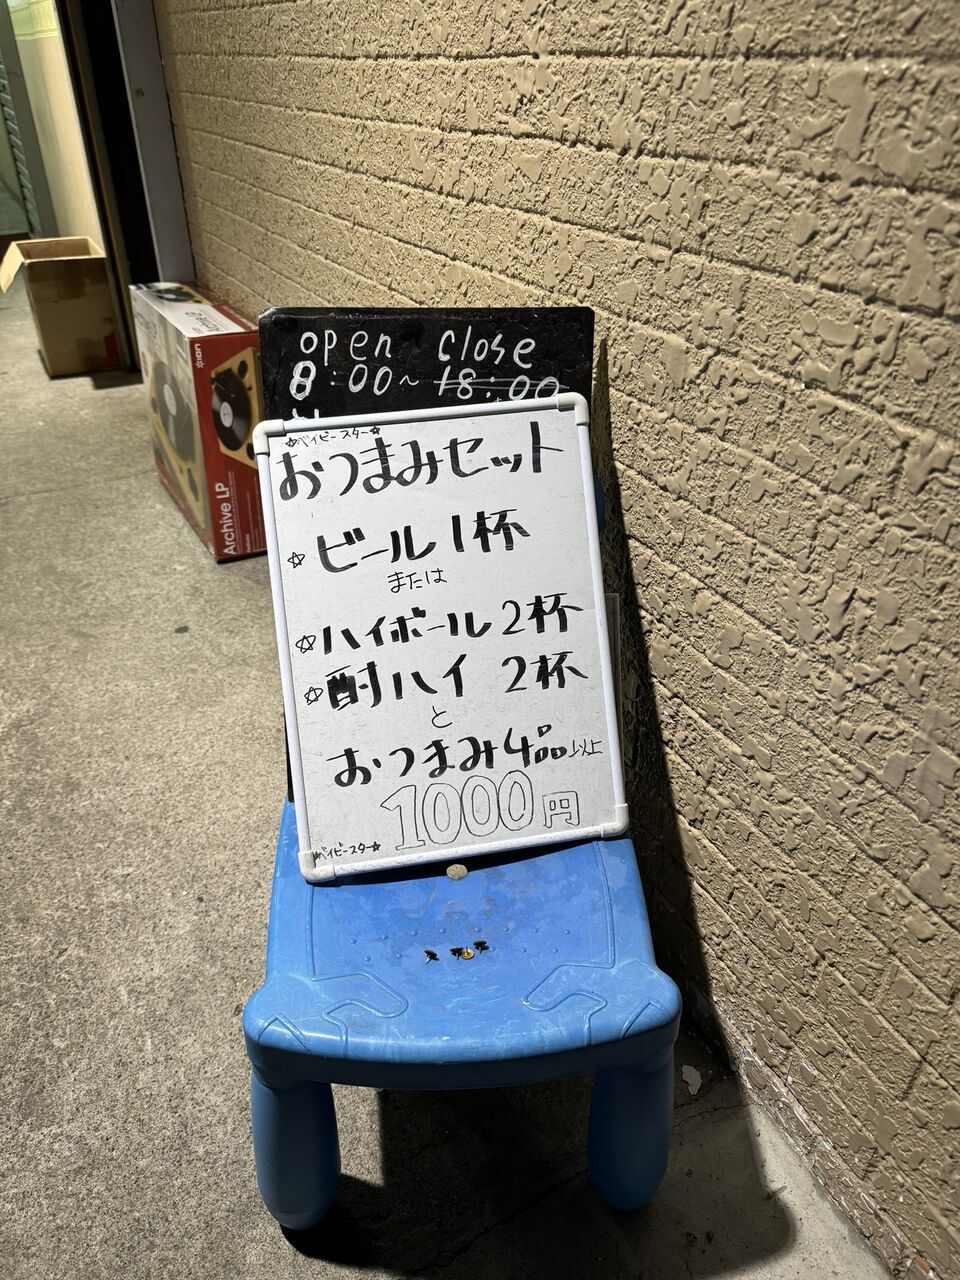 open close
8:00~ 18:00
☆ベイビースター☆
おつまみセット
☆ビール1杯
または
☆ハイボール2杯
☆酎ハイ 2杯
と
おつまみ4品以上
1000円
ベイビースター☆
ION
Archive LP